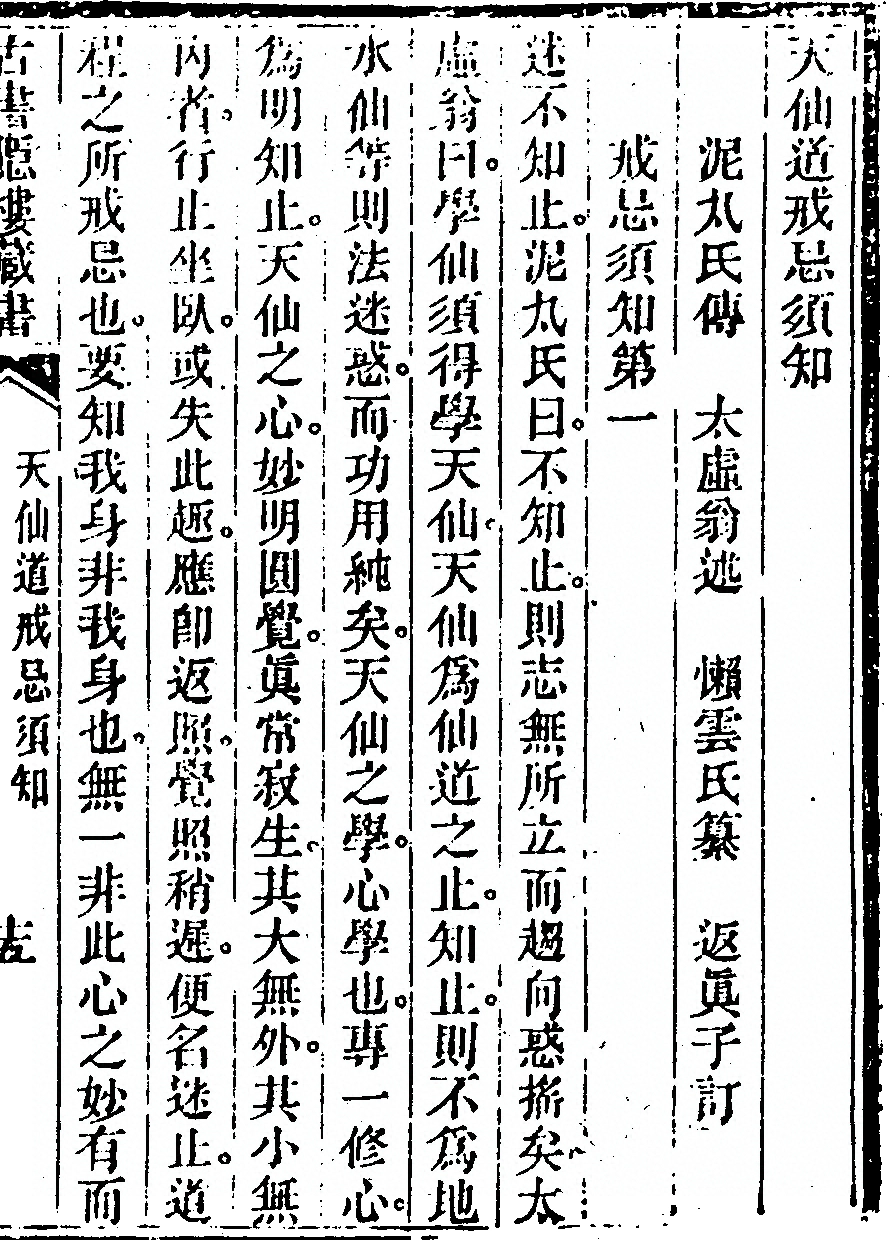 天仙道戒忌須知
泥丸氏傳　太虛翁述　懶雲氏纂　返眞子訂
戒忌須知第一
迷不知止。泥丸氏曰。不知止。則志無所立而趨向惑搖矣。太
虛翁曰。學仙須得學天仙。天仙爲仙道之止。知止。則不爲地
水仙等則法迷惑。而功用純矣。天仙之學。心學也。專一修心。
爲明知止。天仙之心。妙明圓覺。眞常寂生。其大無外。其小無
內者。行止坐臥。或失此趣。應卽返照。覺照稍遲。便名迷止。道
程之所戒忌也。要知我身非我身也。無一非此心之妙有而
古書隱樓藏書
天仙道戒忌須知